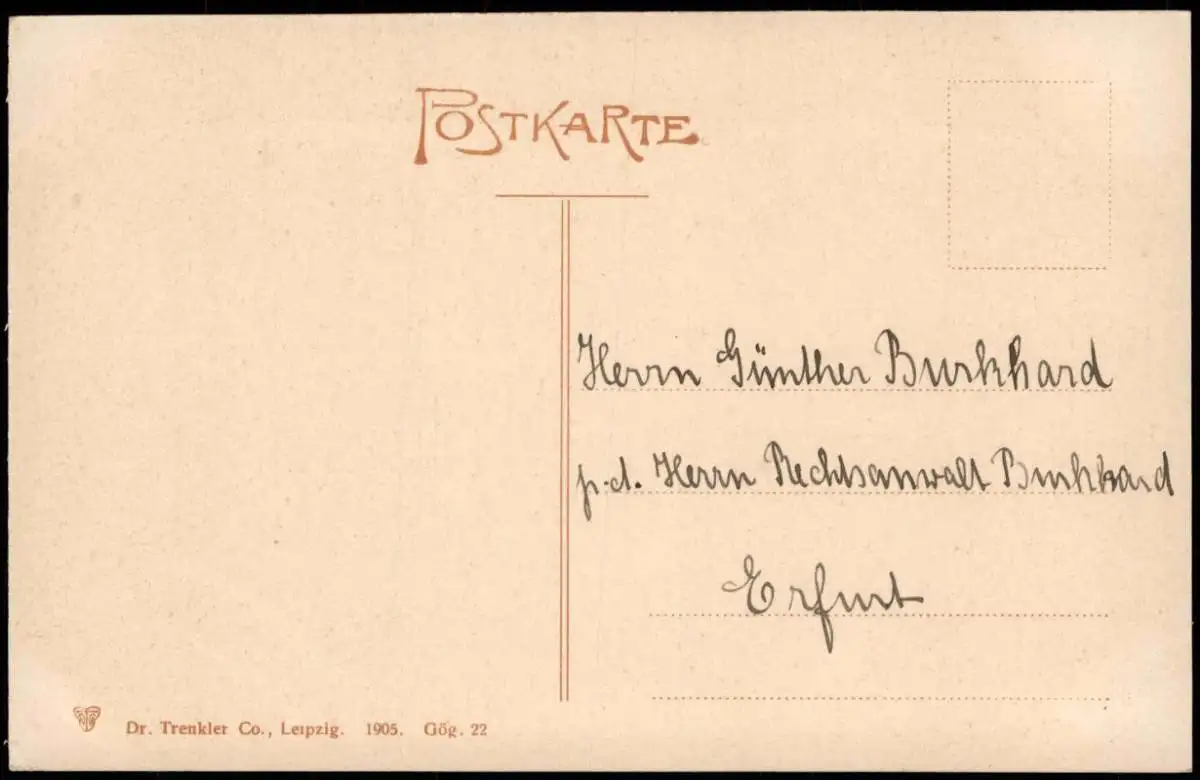 POSTKARTE
Herrn Günther Burkhard
p. d. Herrn Rechtsanwalt Burkhard
Erfurt
Dr. Trenkler Co., Leipzig. 1905. Gög. 22